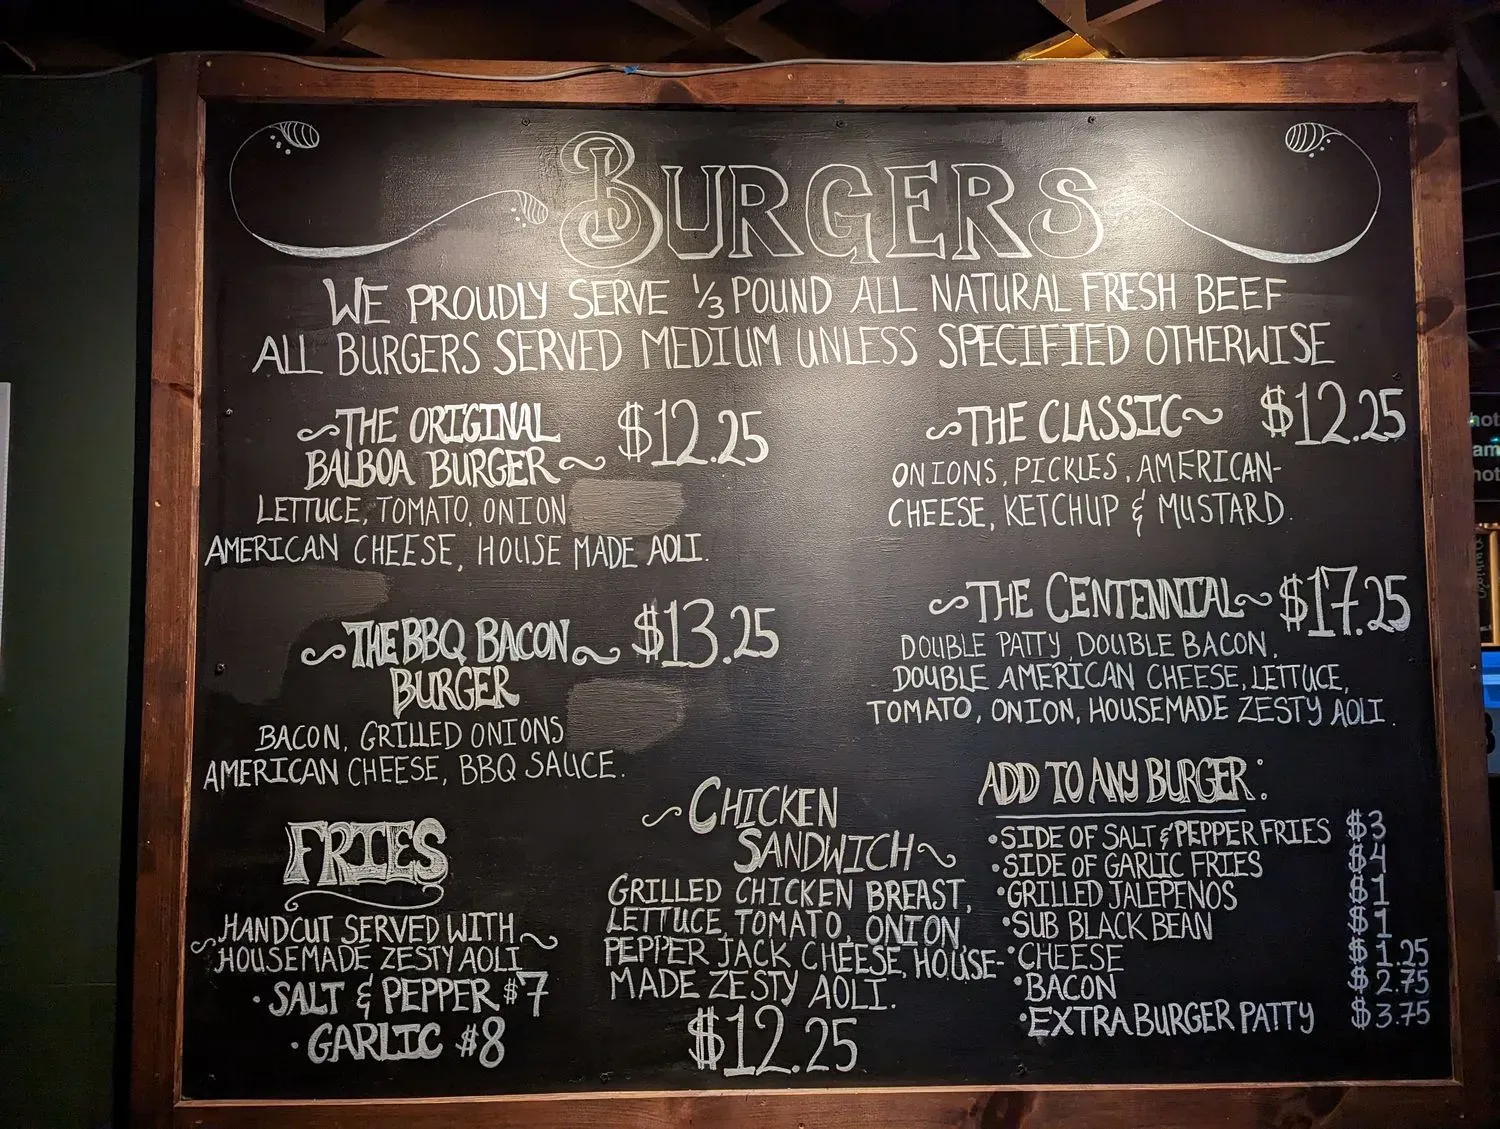 BURGERS
WE PROUDLY SERVE 1/3 POUND ALL NATURAL FRESH BEEF
ALL BURGERS SERVED MEDIUM UNLESS SPECIFIED OTHERWISE
THE ORIGINAL
BALBOA BURGER $12.25
LETTUCE, TOMATO, ONION
AMERICAN CHEESE, HOUSE MADE AOLI.
THE BBQ BACON $13.25
BURGER
BACON, GRILLED ONIONS
AMERICAN CHEESE, BBQ SAUCE.
THE CLASSIC $12.25
ONIONS, PICKLES, AMERICAN-
CHEESE, KETCHUP & MUSTARD.
THE CENTENNIAL $17.25
DOUBLE PATTY, DOUBLE BACON,
DOUBLE AMERICAN CHEESE, LETTUCE,
TOMATO, ONION, HOUSEMADE ZESTY AOLI.
FRIES
HANDCUT SERVED WITH
HOUSEMADE ZESTY AOLI
• SALT & PEPPER $7
• GARLIC $8
CHICKEN
SANDWICH
GRILLED CHICKEN BREAST,
LETTUCE, TOMATO, ONION,
PEPPER JACK CHEESE, HOUSE-
MADE ZESTY AOLI.
$12.25
ADD TO ANY BURGER:
• SIDE OF SALT & PEPPER FRIES $3
• SIDE OF GARLIC FRIES $4
• GRILLED JALEPENOS $1
• SUB BLACK BEAN $1
• CHEESE $1.25
• BACON $2.75
• EXTRA BURGER PATTY $3.75